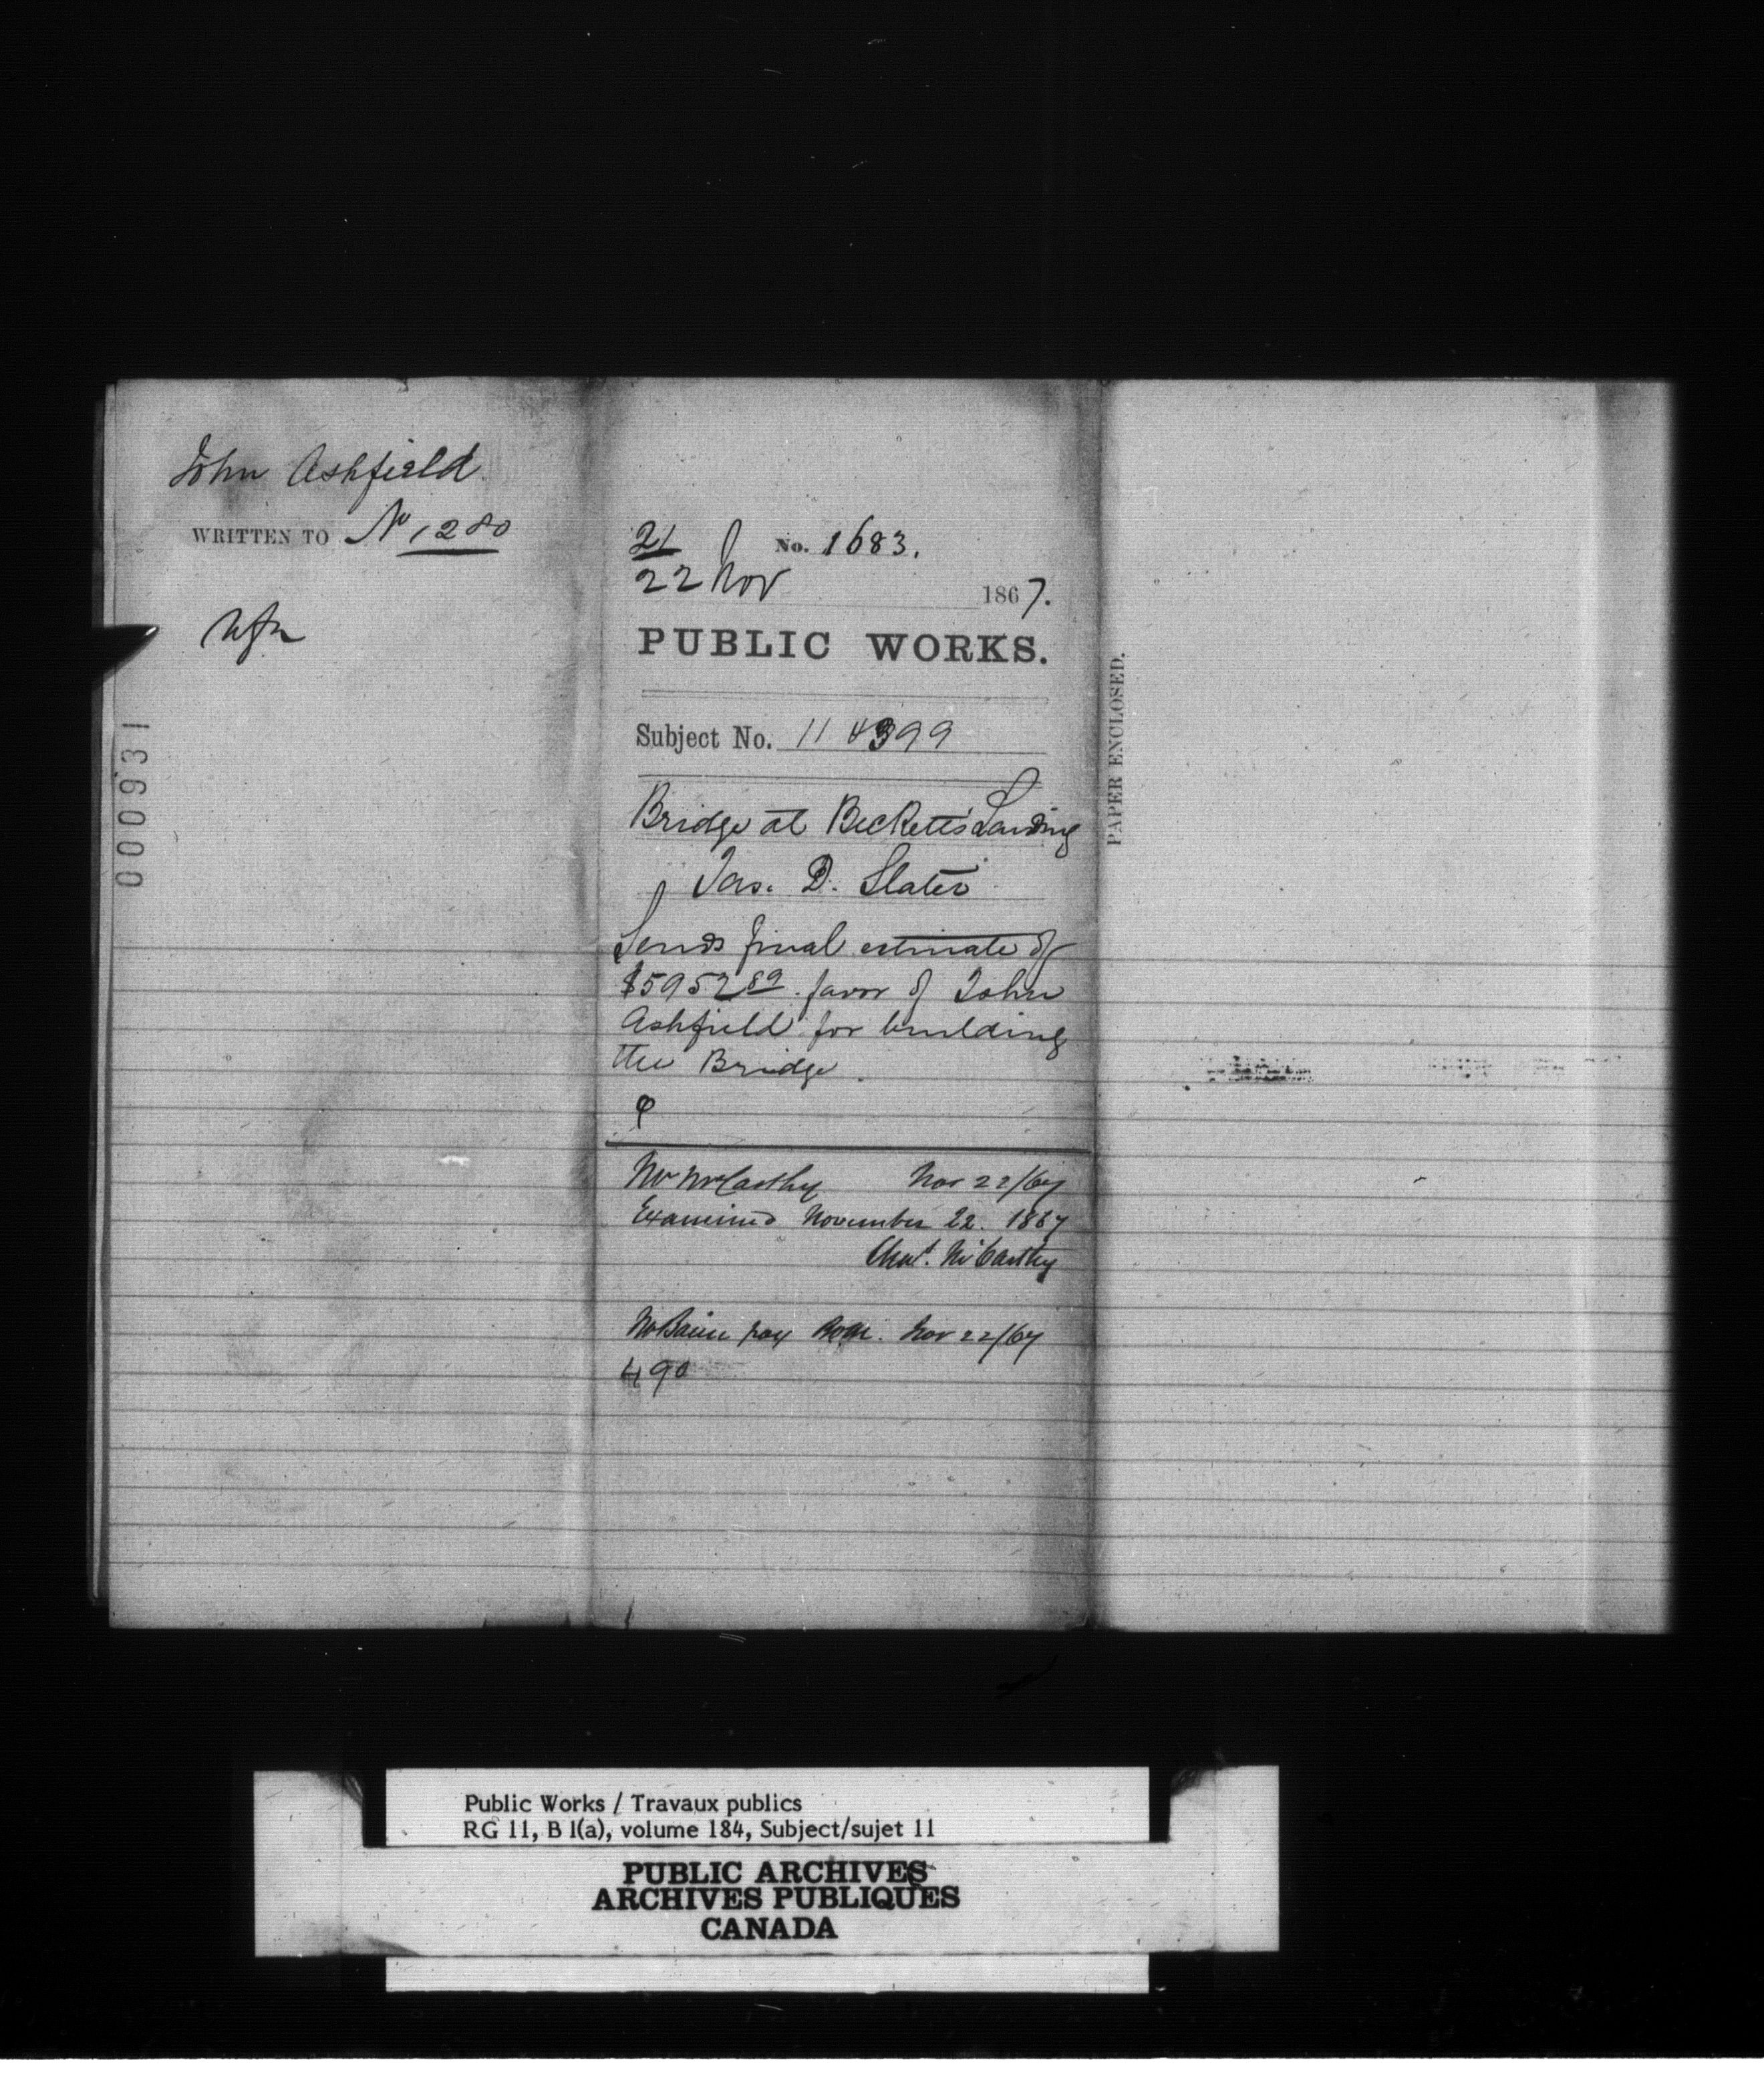 John Ashfield
WRITTEN TO No 1280
000931
21
No. 1683.
22 Nov 1867.
PUBLIC WORKS.
Subject No. 11 4399
Bridge at Becketts Landing
Jas. D. Slater
Sends final estimate of
$5952 89 favor of John
Ashfield for building
the Bridge.
Mr McCarthy Nov 22/67
Examined November 22. 1867
McCarthy
Mr Baine pay Nov 22/67
490
PAPER ENCLOSED.
Public Works / Travaux publics
RG 11, B 1(a), volume 184, Subject/sujet 11
PUBLIC ARCHIVES
ARCHIVES PUBLIQUES
CANADA